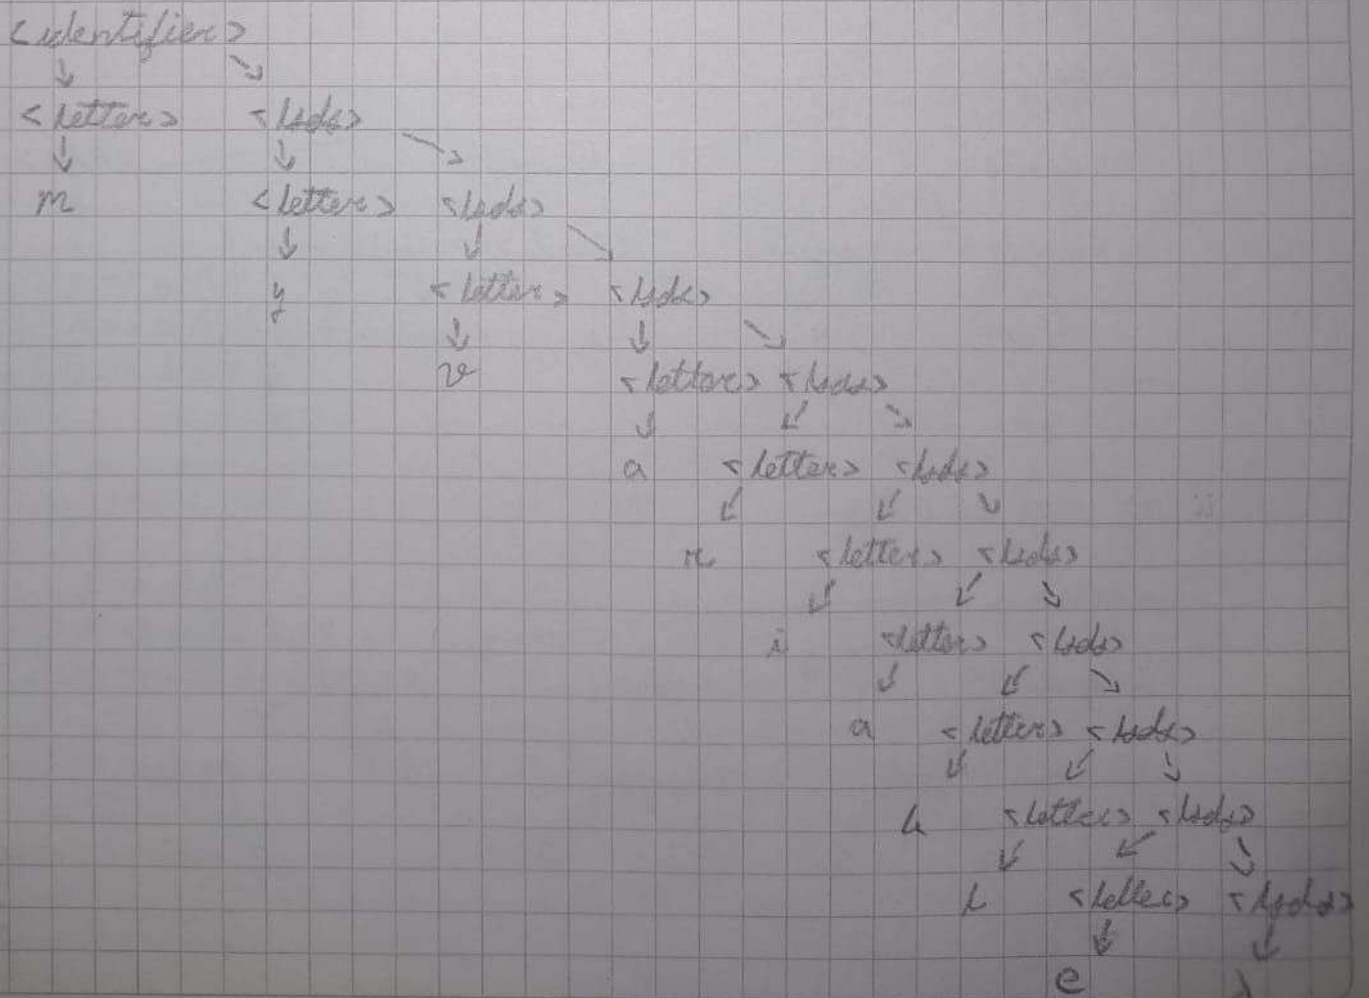 <identifier>
<letter> <lsds>
m <letter> <lsds>
y <letter> <lsds>
v <letter> <lsds>
a <letter> <lsds>
r <letter> <lsds>
i <letter> <lsds>
a <letter> <lsds>
b <letter> <lsds>
l <letter> <lsds>
e λ